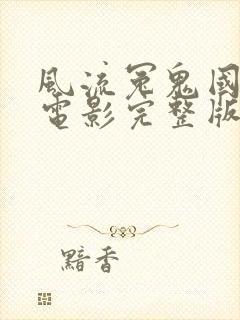 風流冤鬼國
電影完整版
黯香